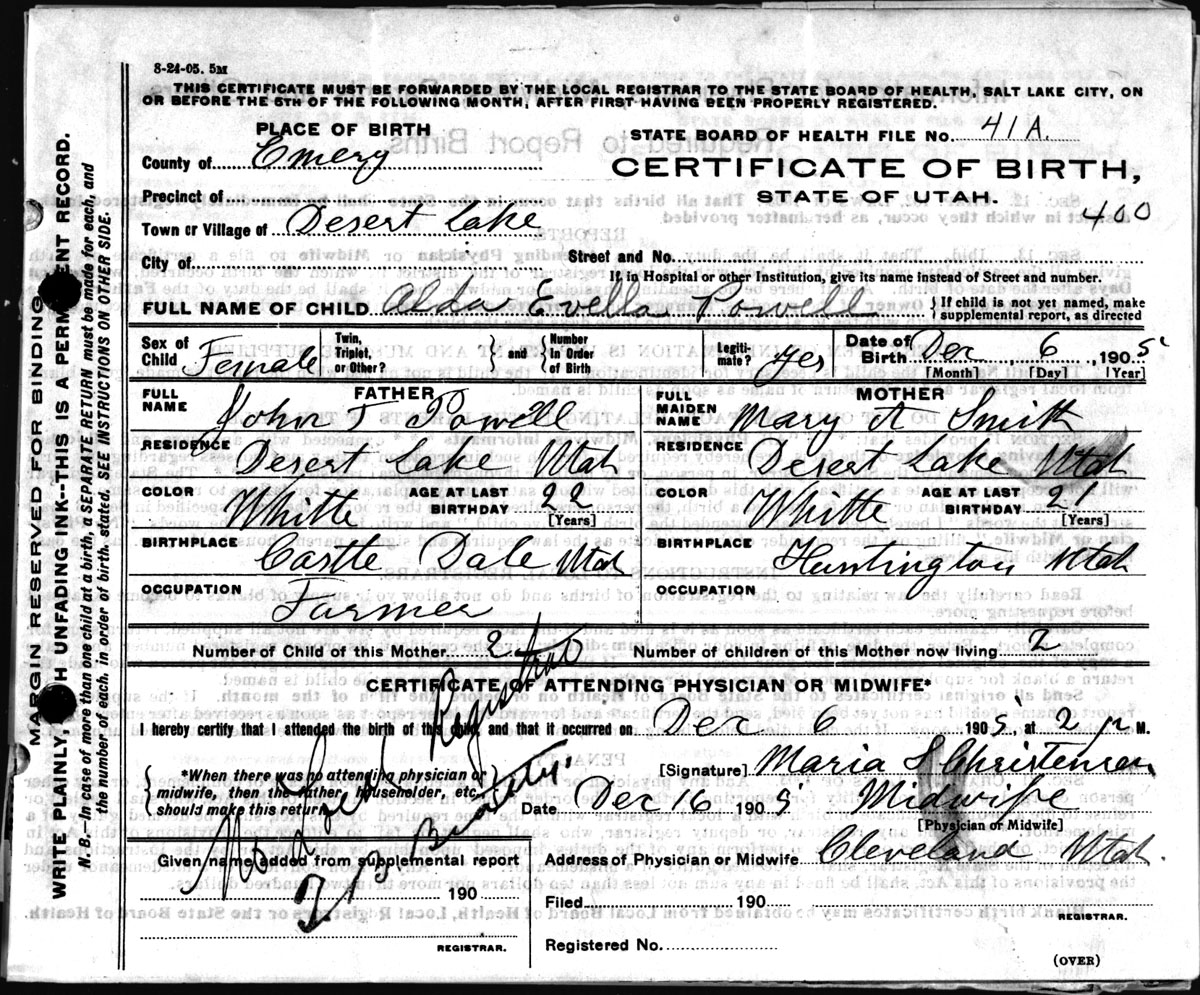 8-24-05. 5M
THIS CERTIFICATE MUST BE FORWARDED BY THE LOCAL REGISTRAR TO THE STATE BOARD OF HEALTH, SALT LAKE CITY, ON
OR BEFORE THE 5TH OF THE FOLLOWING MONTH, AFTER FIRST HAVING BEEN PROPERLY REGISTERED.
PLACE OF BIRTH
STATE BOARD OF HEALTH FILE No. 41A.
County of Emery
CERTIFICATE OF BIRTH,
Precinct of
STATE OF UTAH.
400
Town or Village of Desert Lake
City of Street and No.
If in Hospital or other Institution, give its name instead of Street and number
FULL NAME OF CHILD Alda Evella Powell { If child is not yet named, make
supplemental report, as directed
Sex of Child Female Twin, Triplet, or Other? } and { Number In Order of Birth Legiti- mate? Yes Date of Birth Dec 6, 1905
[Month] [Day] [Year]
FATHER MOTHER
FULL NAME John T Powell FULL MAIDEN NAME Mary A Smith
RESIDENCE Desert Lake Utah RESIDENCE Desert Lake Utah
COLOR Whitte AGE AT LAST BIRTHDAY 22 [Years] COLOR Whitte AGE AT LAST BIRTHDAY [Years]
BIRTHPLACE Castle Dale Utah BIRTHPLACE Huntington Utah
OCCUPATION Farmer OCCUPATION
Number of Child of this Mother 2 Number of children of this Mother now living 2
CERTIFICATE OF ATTENDING PHYSICIAN OR MIDWIFE*
hereby certify that I attended the birth of this child, and that it occurred on Dec 6 1905, at 2 P M.
*When there was no attending physician or
midwife, then the father, householder, etc.,
should make this return.
[Signature] Maria S Christensen
Date Dec 16 1905 Midwife
[Physician or Midwife]
Registrar
Given name added from supplemental report
190
REGISTRAR.
Address of Physician or Midwife Cleveland Utah.
Filed 190
REGISTRAR.
Registered No.
(OVER)
MARGIN RESERVED FOR BINDING
WRITE PLAINLY, WITH UNFADING INK--THIS IS A PERMANENT RECORD.
N. B.--In case of more than one child at a birth, a SEPARATE RETURN must be made for each, and
the number of each, in order of birth, stated. SEE INSTRUCTIONS ON OTHER SIDE.